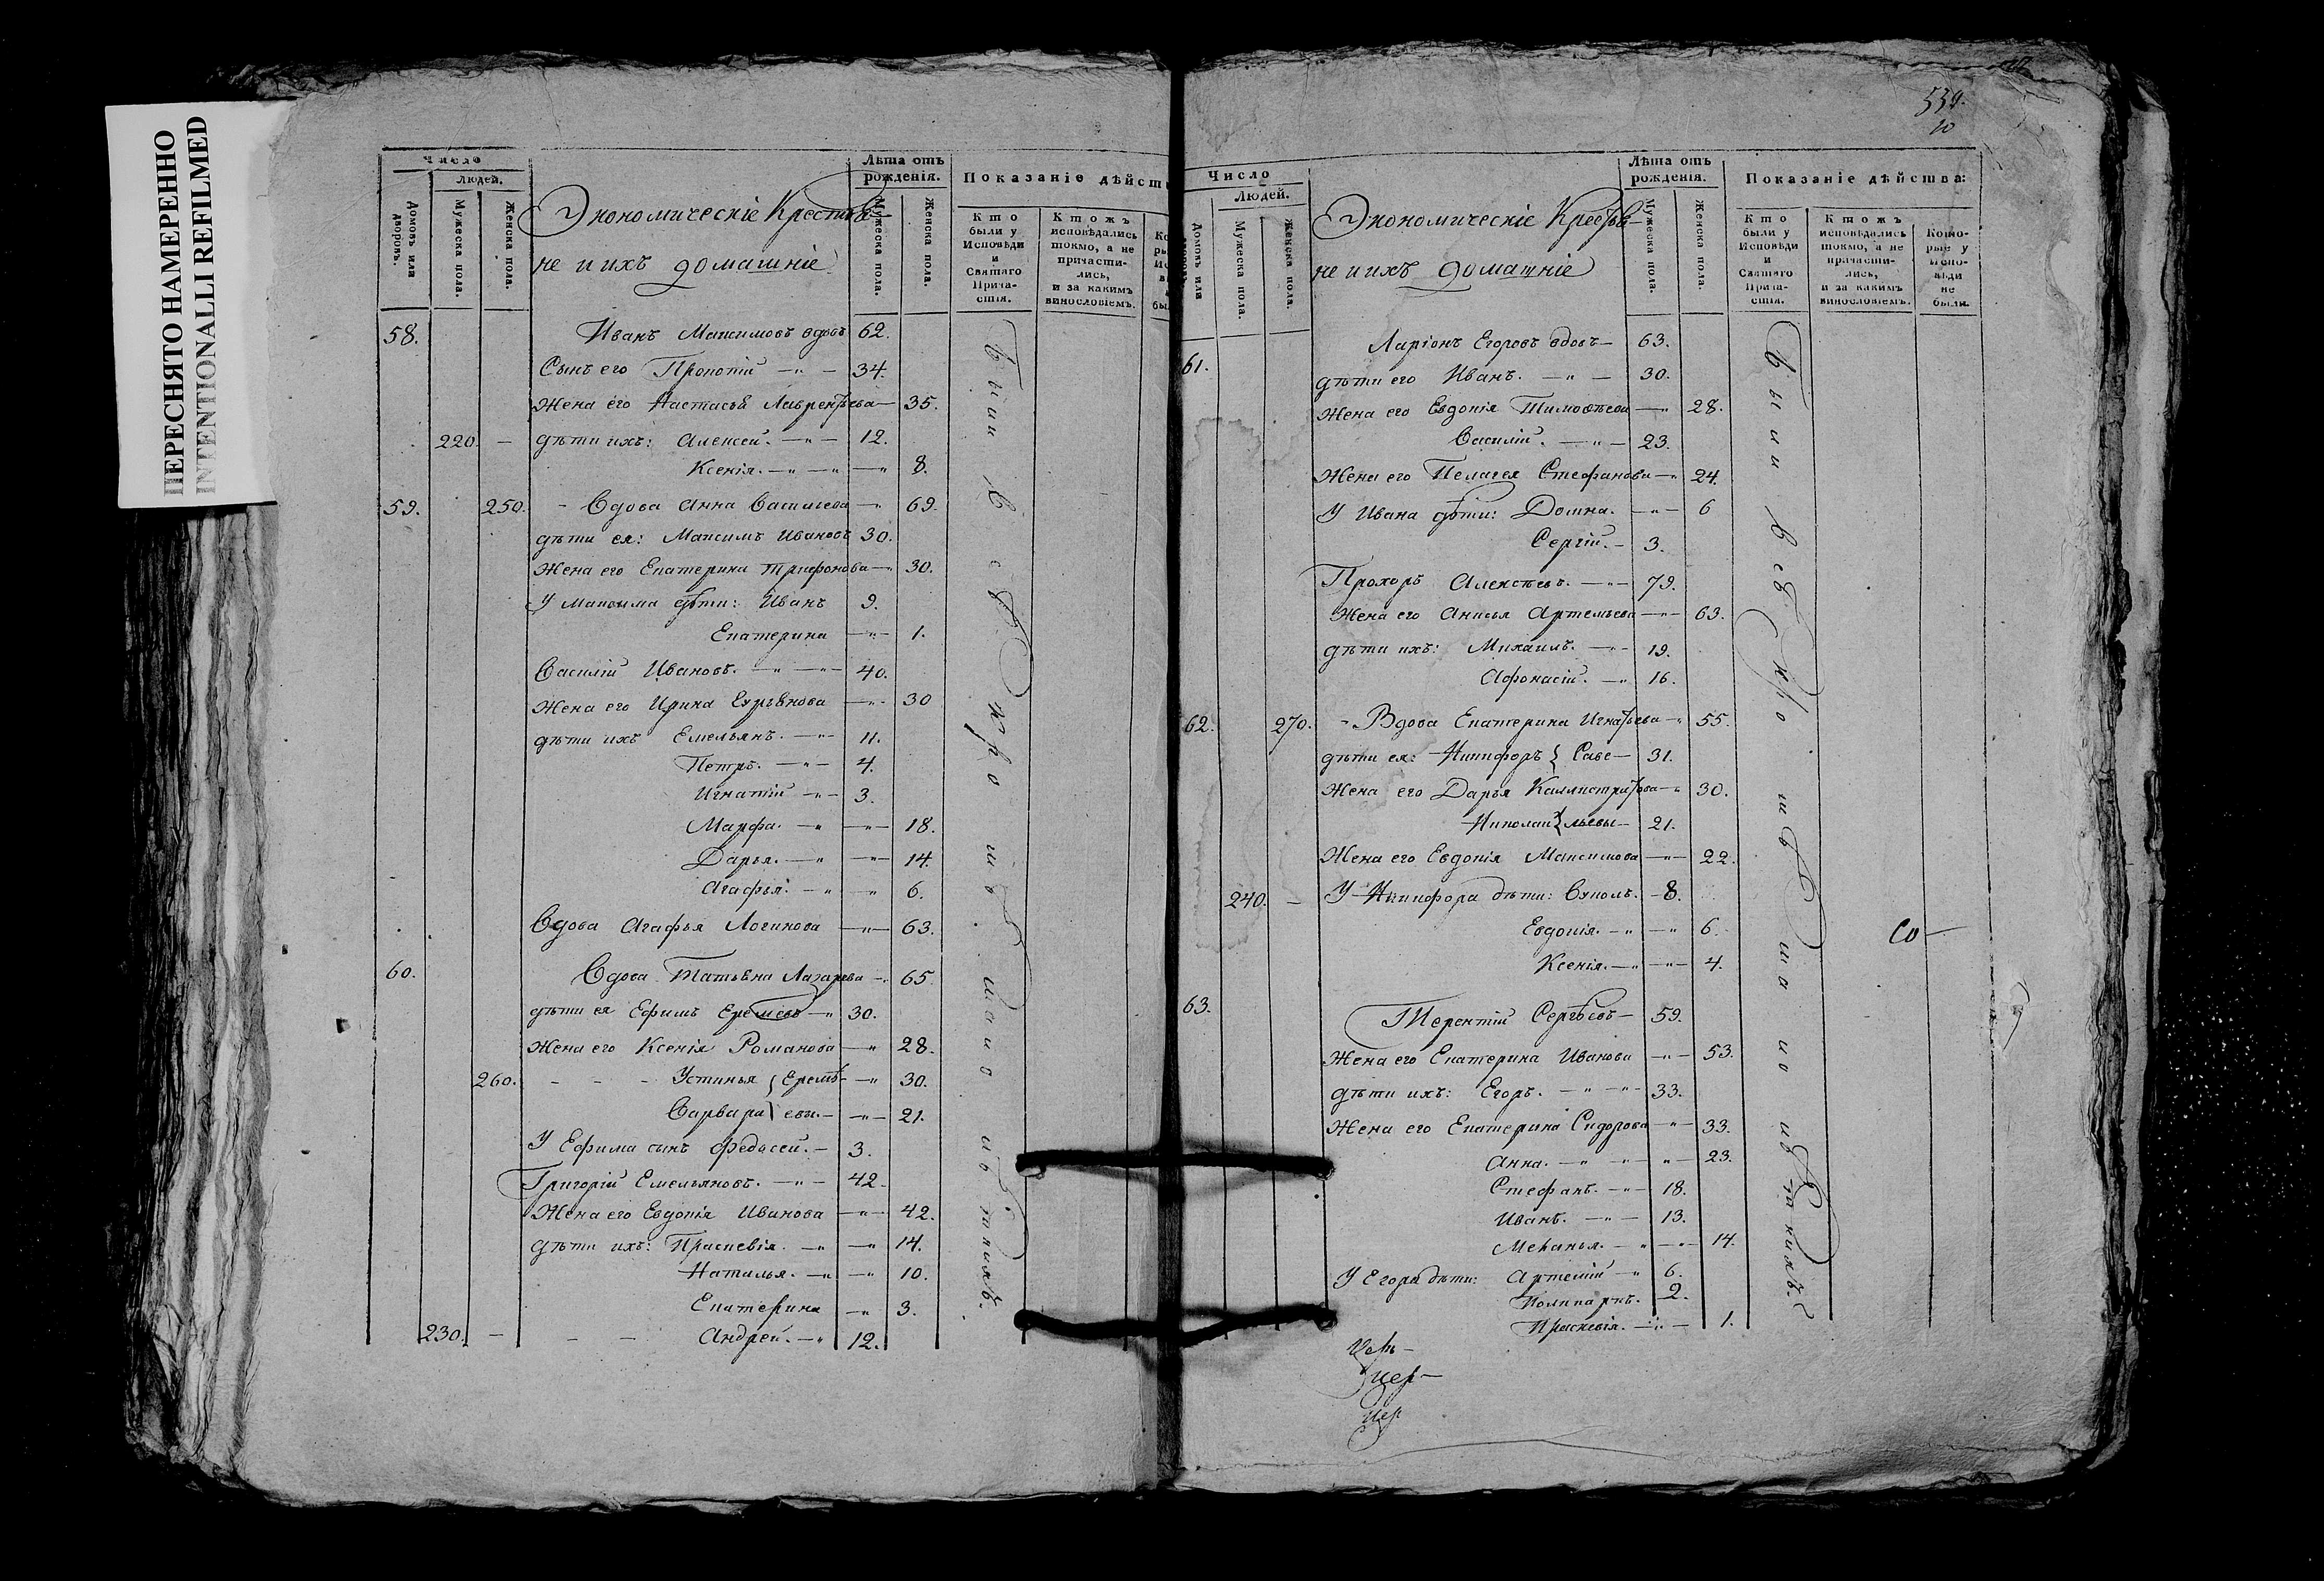 ПЕРЕСНЯТО НАМЕРЕННО
INTENTIONALLI REFILMED
Число
Людей.
Домовъ или дворовъ.
Мужеска пола.
Женска пола.
Экономическіе Крестья-
не и ихъ домашніе
Лѣта отъ рожденія.
Мужеска пола.
Женска пола.
Показаніе дѣйств
Кто были у Исповѣди и Святаго Прича-стія.
Ктожъ исповѣдались токмо, а не причасти-лись, и за какимъ винословіемъ.
58. Иванъ Максимовъ вдовъ 62.
Сынъ его Прокопій — 34.
Жена его Настасья Лаврентьева — 35.
220. — дѣти ихъ: Алексей. — 12.
Ксенія. — 8.
59. 250. - Вдова Анна Васильева — 69.
дѣти ея: Максимъ Ивановъ 30.
Жена его Екатерина Трифонова — 30.
У Максима дѣти: Иванъ 9.
Екатерина — 1.
Василій Ивановъ. — 40.
Жена его Ирина — 30
дѣти ихъ Емельянъ. — 11.
Петръ. — 4.
Игнатій — 3.
Марфа. — 18.
Дарья. — 14.
Агафья. — 6.
Вдова Агафья Логинова — 63.
60. Вдова Татьяна Лазарева — 65
дѣти ея Ефимъ Еремеевъ — 30.
Жена его Ксенія Романова — 28.
260. - - - Устинья } Еремѣ- — 30.
Варвара } евы. — 21.
У Ефима сынъ Федосей. — 3.
Григорій Емельяновъ. — 42.
Жена его Евдокія Иванова — 42.
дѣти ихъ: Праскевія. — 14.
Наталья. — 10.
Екатерина — 3.
230. — - - Андрей. — 12.
Были всѣ кромѣ малолѣтнихъ.
539.
10
Число
Людей.
Домовъ или
Мужеска пола.
Женска пола.
Экономическіе Крестья-
не и ихъ домашніе
Лѣта отъ рожденія.
Мужеска пола.
Женска пола.
Показаніе дѣйства:
Кто были у Исповѣди и Святаго Прича-стія.
Ктожъ исповѣдались токмо, а не причасти-лись, и за какимъ винословіемъ.
Кото-рые у испо-вѣди не были.
61. Ларіонъ Егоровъ вдовъ — 63.
дѣти его Иванъ. — 30.
Жена его Евдокія Тимоѳеева — 28.
Василій. — 23.
Жена его Пелагея Стефанова — 24.
У Ивана дѣти: Домна. — 6
Сергій. — 3.
Прохоръ Алексѣевъ. — 79.
Жена его Анисья Артемьева — 63.
дѣти ихъ: Михаилъ. — 19.
Афонасій. — 16.
62. 270. - Вдова Екатерина Игнатьева — 55.
дѣти ея: Никифоръ } Саве- 31.
Жена его Дарья Каллистратова — 30.
Николай } льевы — 21.
Жена его Евдокія Максимова — 22.
240. — У Никифора дѣти: Вуколъ. — 8.
Евдокія. — 6.
Ксенія. — 4.
63. Терентій Сергѣевъ — 59.
Жена его Екатерина Иванова — 53.
дѣти ихъ: Егоръ. — 33.
Жена его Екатерина Сидорова — 33.
Анна. — 23.
Стефанъ. — 18.
Иванъ. — 13.
Меланья. — 14.
У Егора дѣти: Артемій — 6.
Поликарпъ. 2.
Праскевія. — 1.
Были всѣ кромѣ малолѣтнихъ.